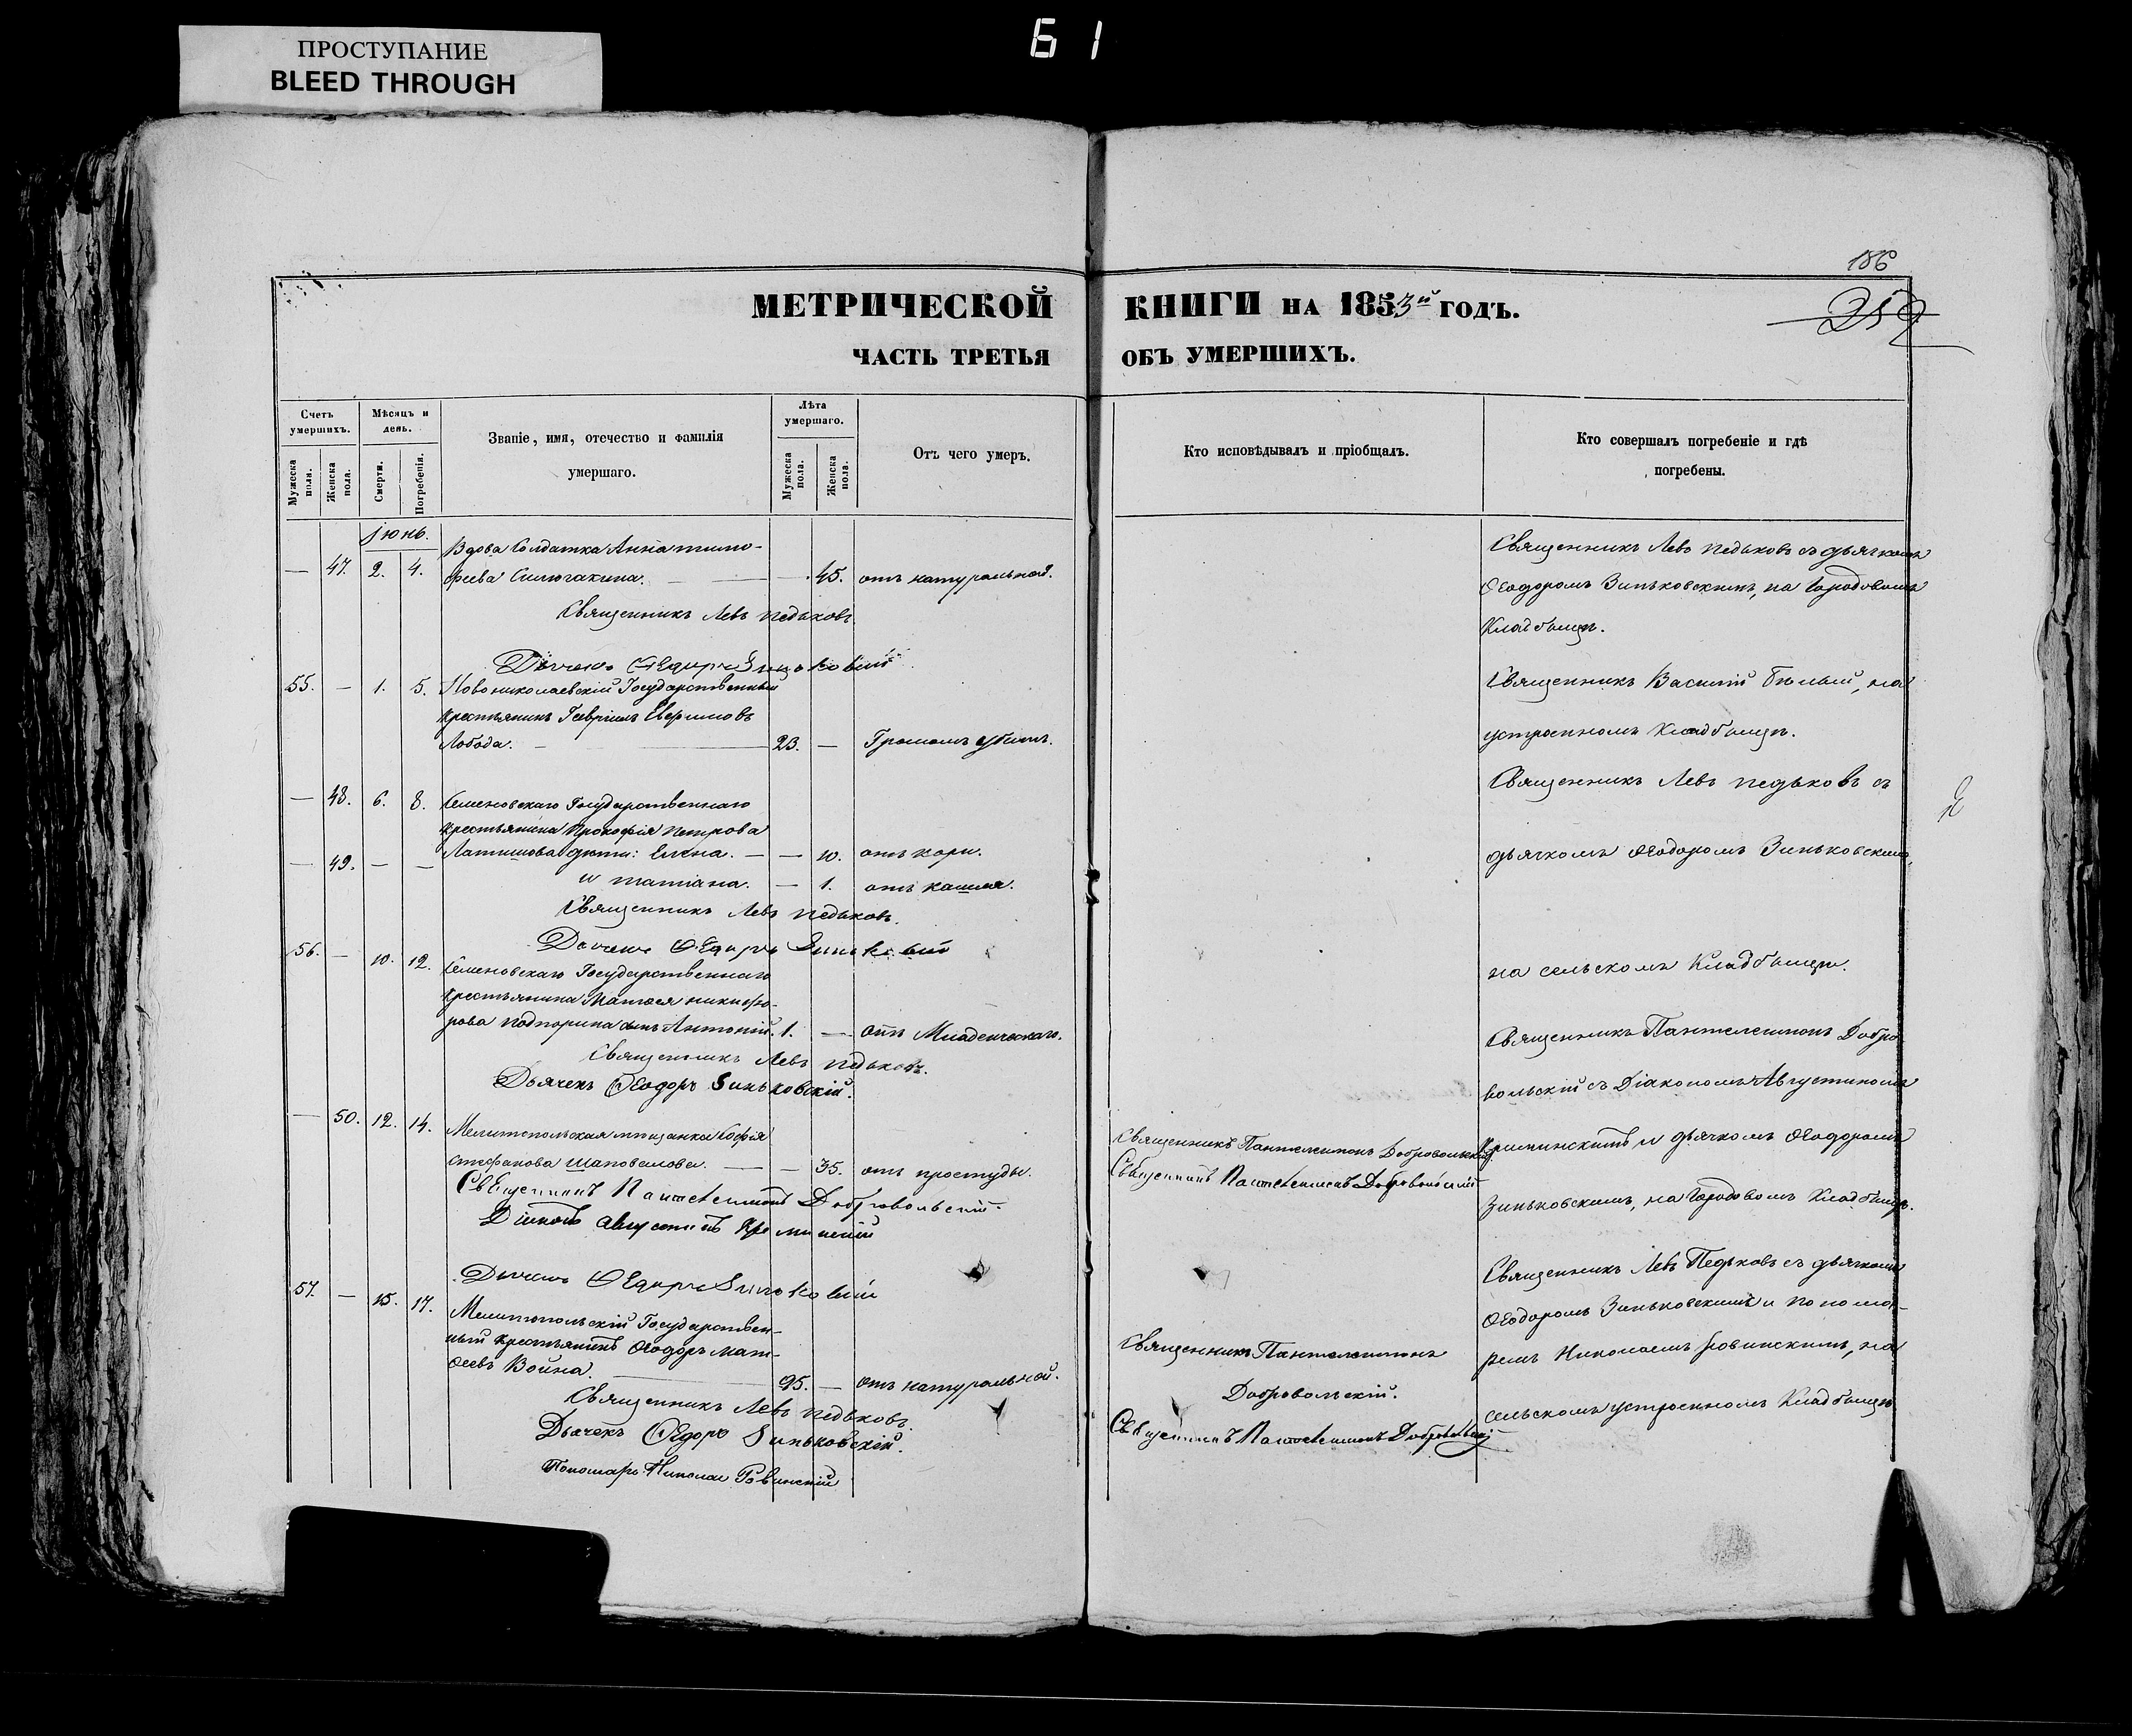 61
ПРОСТУПАНИЕ
BLEED THROUGH
186
259
МЕТРИЧЕСКОЙ КНИГИ НА 1853й ГОДЪ.
ЧАСТЬ ТРЕТЬЯ ОБЪ УМЕРШИХЪ.
Счетъ умершихъ.
Мужеска пола.
Женска пола.
Мѣсяцъ и день.
Смерти.
Погребенія.
Званіе, имя, отечество и фамилія
умершаго.
Лѣта умершаго.
Мужеска пола.
Женска пола.
Отъ чего умеръ.
Кто исповѣдывалъ и пріобщалъ.
Кто совершалъ погребеніе и гдѣ
погребены.
Іюнь.
Вдова Солдатка Анна Тимо-
— 47. 2. 4. феева — 45. отъ натуральной.
Священникъ Левъ Педьковъ
Дьячекъ Ѳеодоръ Зиньковскій
Священникъ Левъ Педьковъ съ дьячкомъ
Ѳеодоромъ Зиньковскимъ, на Городовомъ
Кладбищѣ.
55. — 1. 5. Новониколаевскій Государственный
крестьянинъ Гавріилъ Евфимовъ
Лобода. — 23. — Громомъ убитъ.
Священникъ Василій Бѣлый, на
устроенномъ Кладбищѣ.
— 48. 6. 8. Семеновскаго Государственнаго
крестьянина Прокофія Петрова
— 49. — — Латишова дѣти: Елена. — — 10. отъ кори.
и Татіана. — 1. отъ кашля.
Священникъ Левъ Педьковъ.
Дьячекъ Ѳеодоръ Зиньковскій
Священникъ Левъ Педьковъ съ
дьячкомъ Ѳеодоромъ Зиньковскимъ,
на сельскомъ Кладбищѣ.
56. — 10. 12. Семеновскаго Государственнаго
крестьянина Матѳея Никифо-
рова Подпорина сынъ Антоній. 1. — отъ Младенческаго.
Священникъ Левъ Педьковъ.
Дьячекъ Ѳеодоръ Зиньковскій.
Священникъ Пантелеимонъ Добро-
вольскій съ Діакономъ Августиномъ
Криминскимъ и дьячкомъ Ѳеодоромъ
Зиньковскимъ, на Городовомъ Кладбищѣ.
— 50. 12. 14. Мелитопольская мѣщанка Софія
Стефанова Шаповалова. — — 35. отъ простуды.
Священникъ Пантелеимонъ Добровольскій
Діаконъ Августинъ Криминскій
Дьячекъ Ѳеодоръ Зиньковскій
Священникъ Пантелеимонъ Добровольскій
Священникъ Пантелеимонъ Добровольскій
57. — 15. 17. Мелитопольскій Государствен-
ный крестьянинъ Ѳеодоръ Мат-
ѳеевъ Война. — 95. — отъ натуральной.
Священникъ Левъ Педьковъ.
Дьячекъ Ѳедоръ Зиньковскій.
Пономарь Николай Ровинскій
Священникъ Пантелеимонъ
Добровольскій.
Священникъ Пантелеимонъ Добровольскій
Священникъ Левъ Педьковъ съ дьячкомъ
Ѳеодоромъ Зиньковскимъ и понома-
ремъ Николаемъ Ровинскимъ, на
сельскомъ устроенномъ Кладбищѣ